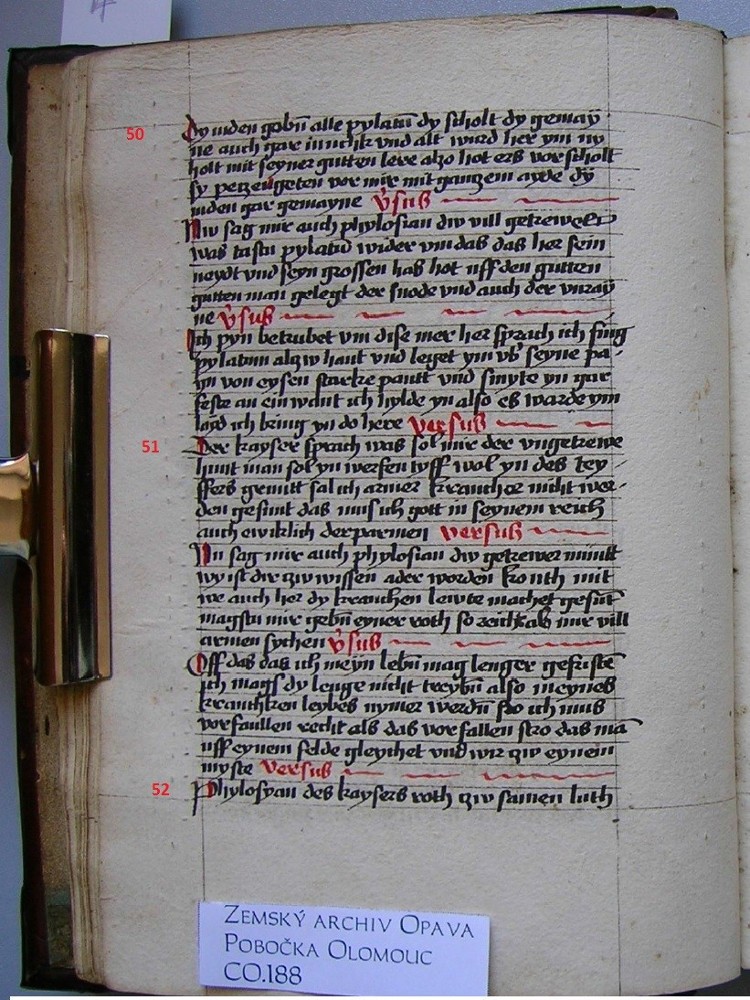 50
Dy iuden gabn̄ alle pylatū dy scholt dy gemay
ne auch gar inniclik vnd alt wurd her ym ny
holt mit seyner gutten lere alzo hot ers vorscholt
sy peizeugeten vor mir mit ganzem ayde dy
iuden gar gemayne v̄sus
Nw sag mir auch phylosian dw vill getrewer
was tastu pylatū wider vm das das her sein
neydt vnd seyn grossen has hot uff den gutten
gutten man gelegt der snode vnd auch der vnray
ne v̄sus
Ich pyn betrubet vm dise mer her sprach ich fing
pylatum alzw hant vnd leget ym vb̄ seyne pa
yn von eysen starke pantt vnd smyte yn gar
feste an ein want ich hylde yn also es warde ym
layd ich bring yn do here versus
51
Der kayser sprach was sol mir der vngetrewe
hunt man sol yn werfen tyff wol yn des tey
ffers grunt sal ich armer krancher nicht wer
den gesunt das mus ich gott in seynem reich
auch ewiklich derparmen versus
Nu sag mir auch phylosian dw getrewer
wy ist dir zw wissen ader worden kont mit
we auch her dy kranchen lewte machet gesūt
magstu mir gebn̄ eyner roth so mir vill
armen sychen v̄sus
Off das das ich meyn lebn̄ mag lenger gefriste
ich mags dy lenge nicht treybn̄ also meynes
kranchken leybes nymer werdn̄ fro ich mus
vorfaullen recht als das vorfallen stro das mā
uff eynem felde gleychet vnd wir zw eynem
myste versus
52
Phylosyan des kaysers roth zw samen luth
Zemský archiv Opava
Pobočka Olomouc
CO.188